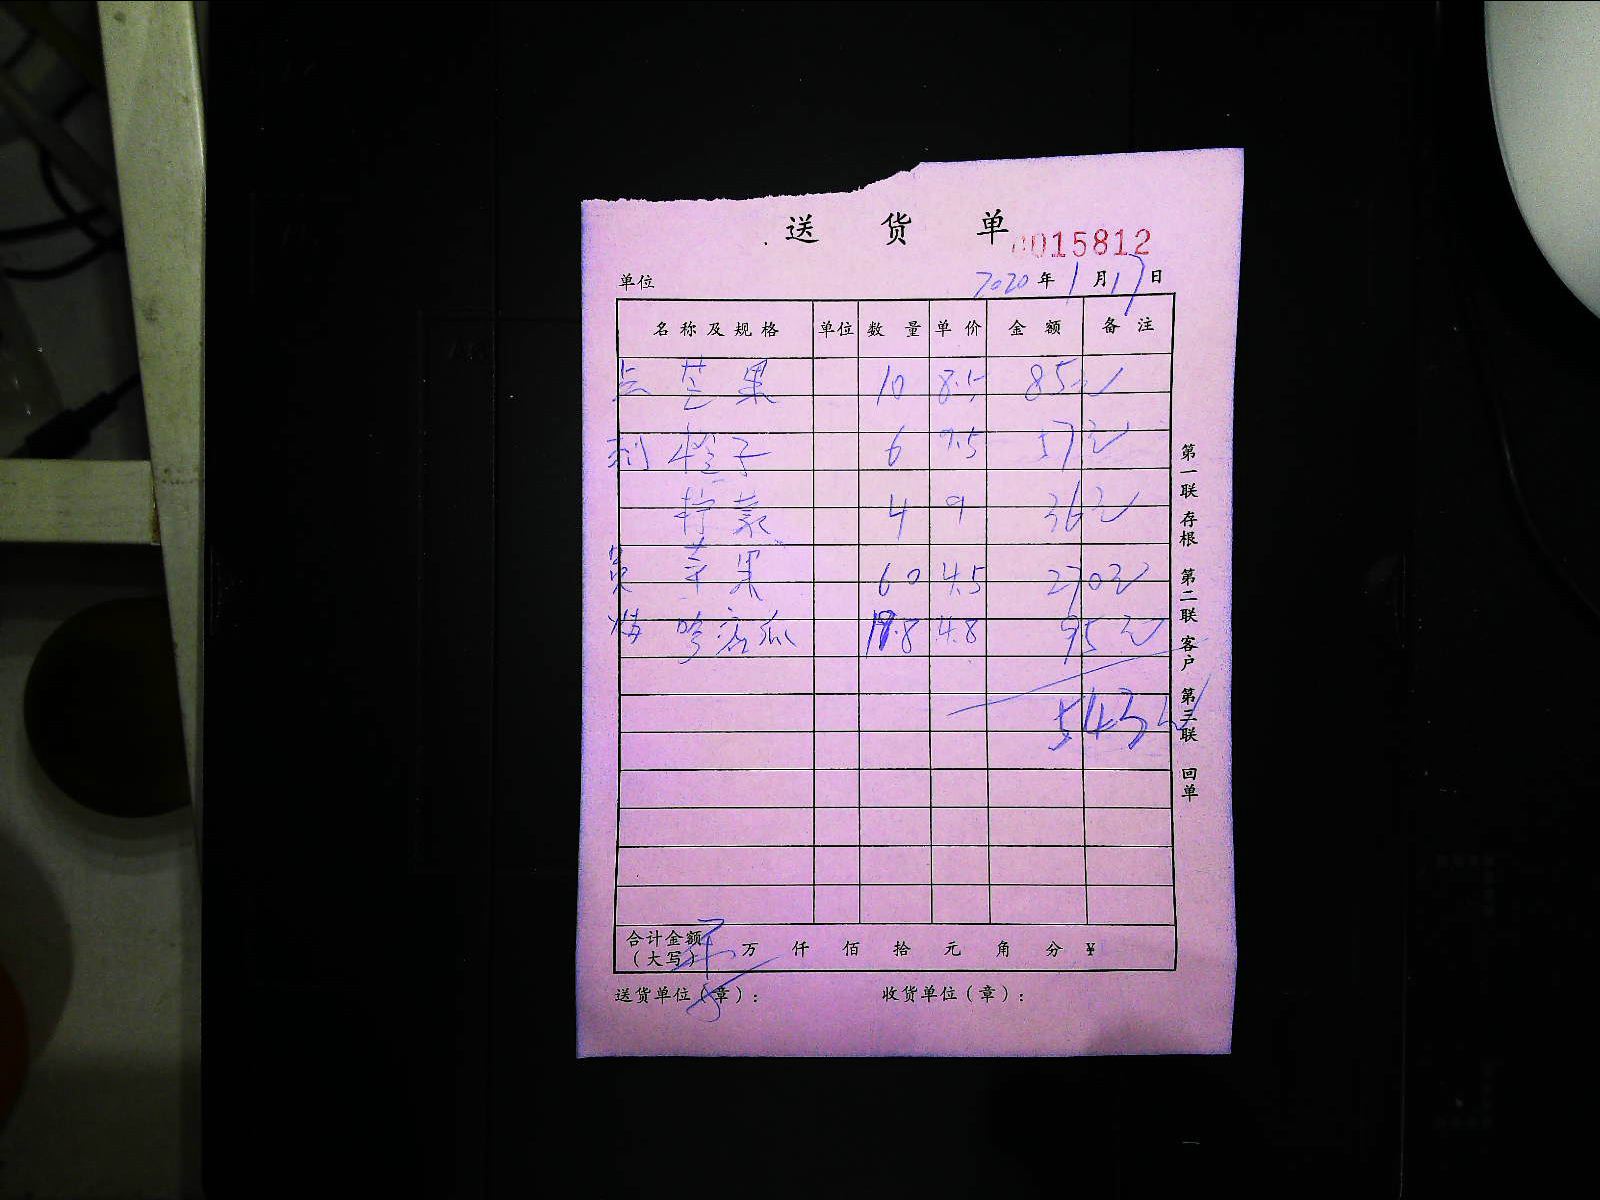 送 货 单
0015812
单位 2020 年 1 月 17 日
名称及规格 单位 数量 单价 金额 备注
点 芒果 10 8.5 85元
刺 橙子 6 9.5 57元
柠蒙 4 9 36元
苹果 60 4.5 270元
哈密瓜 19.8 4.8 95元
543元
合计金额(大写) 万 仟 佰 拾 元 角 分 ¥
送货单位(章): 收货单位(章):
第一联 存根 第二联 客户 第三联 回单